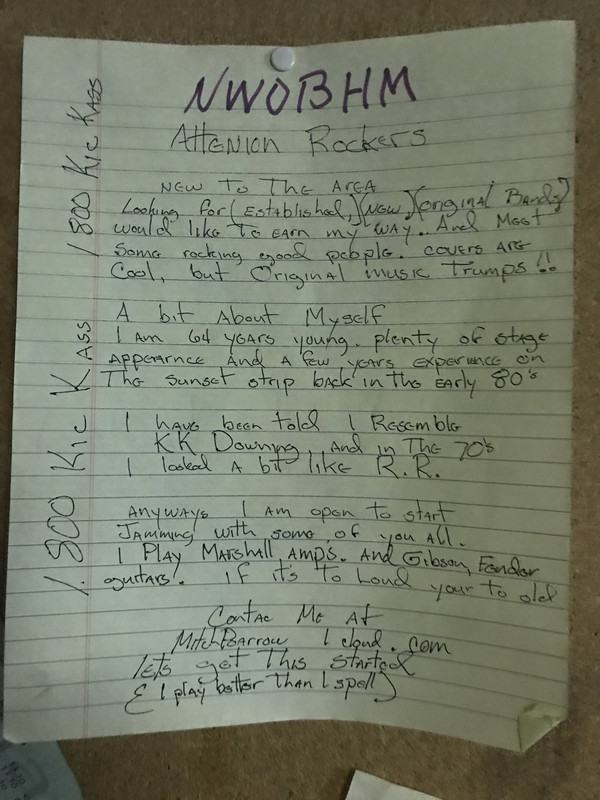 NWOBHM
AttENION RockERS
NEW To The AREA
Looking for (EstAblishEd,) (NEW) (original Bands)
would likE To EARN my WAY.. And MEEt
Some rocking good people. covers ARE
Cool, but Original music Trumps!!
A bit About Myself
I Am 64 yEARS young. plenty of stagE
AppEArnce And A few yEARS ExpEriance on
The Sunset strip back in the EARly 80's
I havE been told I REsEmble
KK Downing, And in The 70's
I looked A bit likE R.R.
ANYWAYS I Am open to start
JAmming with some of you All.
I PlAy MARshall Amps. And Gibson, FEndor
guitars. if it's To Loud your to old
ContAc ME At
I cloud. com
lets get This started
(I play better than I spell)
1 800 Kic KAss
1.800 Kic K Ass